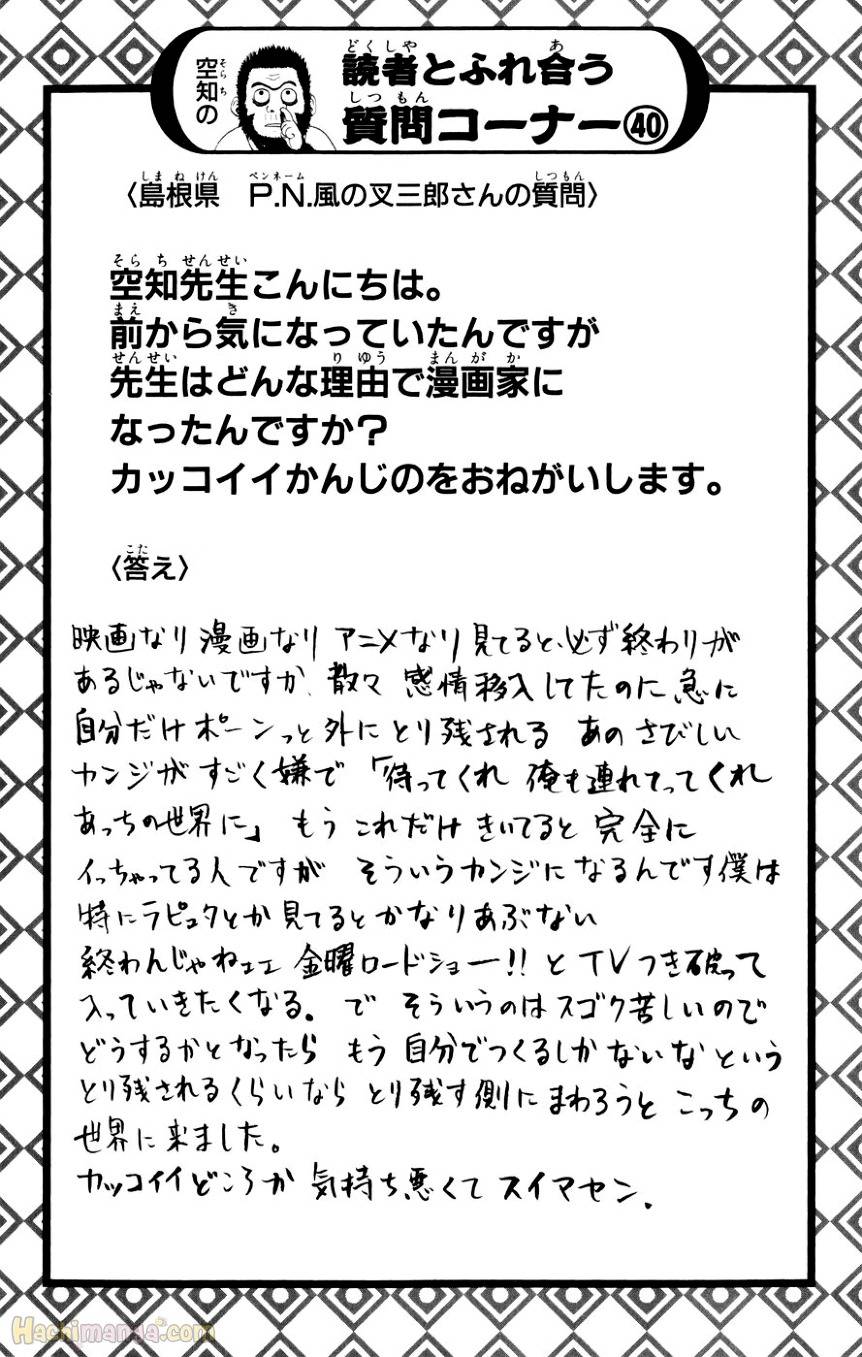 空知の
読者とふれ合う
質問コーナー㊵
〈島根県　P.N.風の叉三郎さんの質問〉
空知先生こんにちは。
前から気になっていたんですが
先生はどんな理由で漫画家に
なったんですか？
カッコイイかんじのをおねがいします。
〈答え〉
映画なり 漫画なり アニメなり 見てると、必ず終わりが
あるじゃないですか、散々 感情移入してたのに 急に
自分だけポーンっと外にとり残される あのさびしい
カンジがすごく嫌で「待ってくれ 俺も連れてってくれ
あっちの世界に」もうこれだけきいてると 完全に
イっちゃってる人ですが そういうカンジになるんです僕は
特にラピュタとか見てるとかなりあぶない
終わんじゃねェェ 金曜ロードショー!! とTVつき破って
入っていきたくなる。で そういうのはスゴク苦しいので
どうするかとなったら もう 自分でつくるしかないなという
とり残されるくらいなら とり残す側にまわろうと こっちの
世界に来ました。
カッコイイどころか 気持ち悪くて スイマセン.
Hachimanga.com